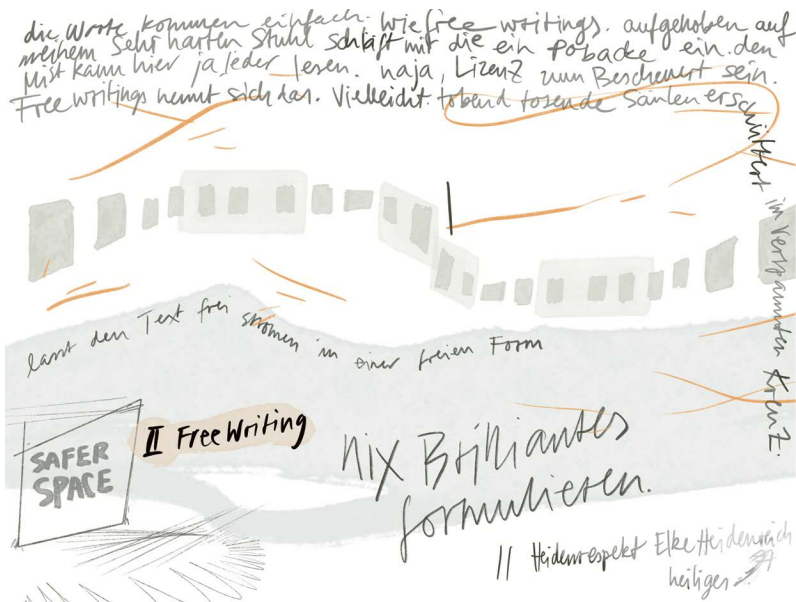 die Worte kommen einfach. Wie free writings. aufgehoben auf
meinem sehr harten Stuhl schläft mir die ein Pobacke ein. den
Mist kann hier ja jeder lesen. naja, Lizenz zum Bescheuert sein.
Free writings nennt sich das. Vielleicht. tobend tosende Säulen erschüttert im verspannten Kreuz.
lasst den Text frei strömen in einer freien Form
II Free Writing
SAFER
SPACE
nix Brilliantes
formulieren.
|| Heidenrespekt Elke Heidenreich
heiliger